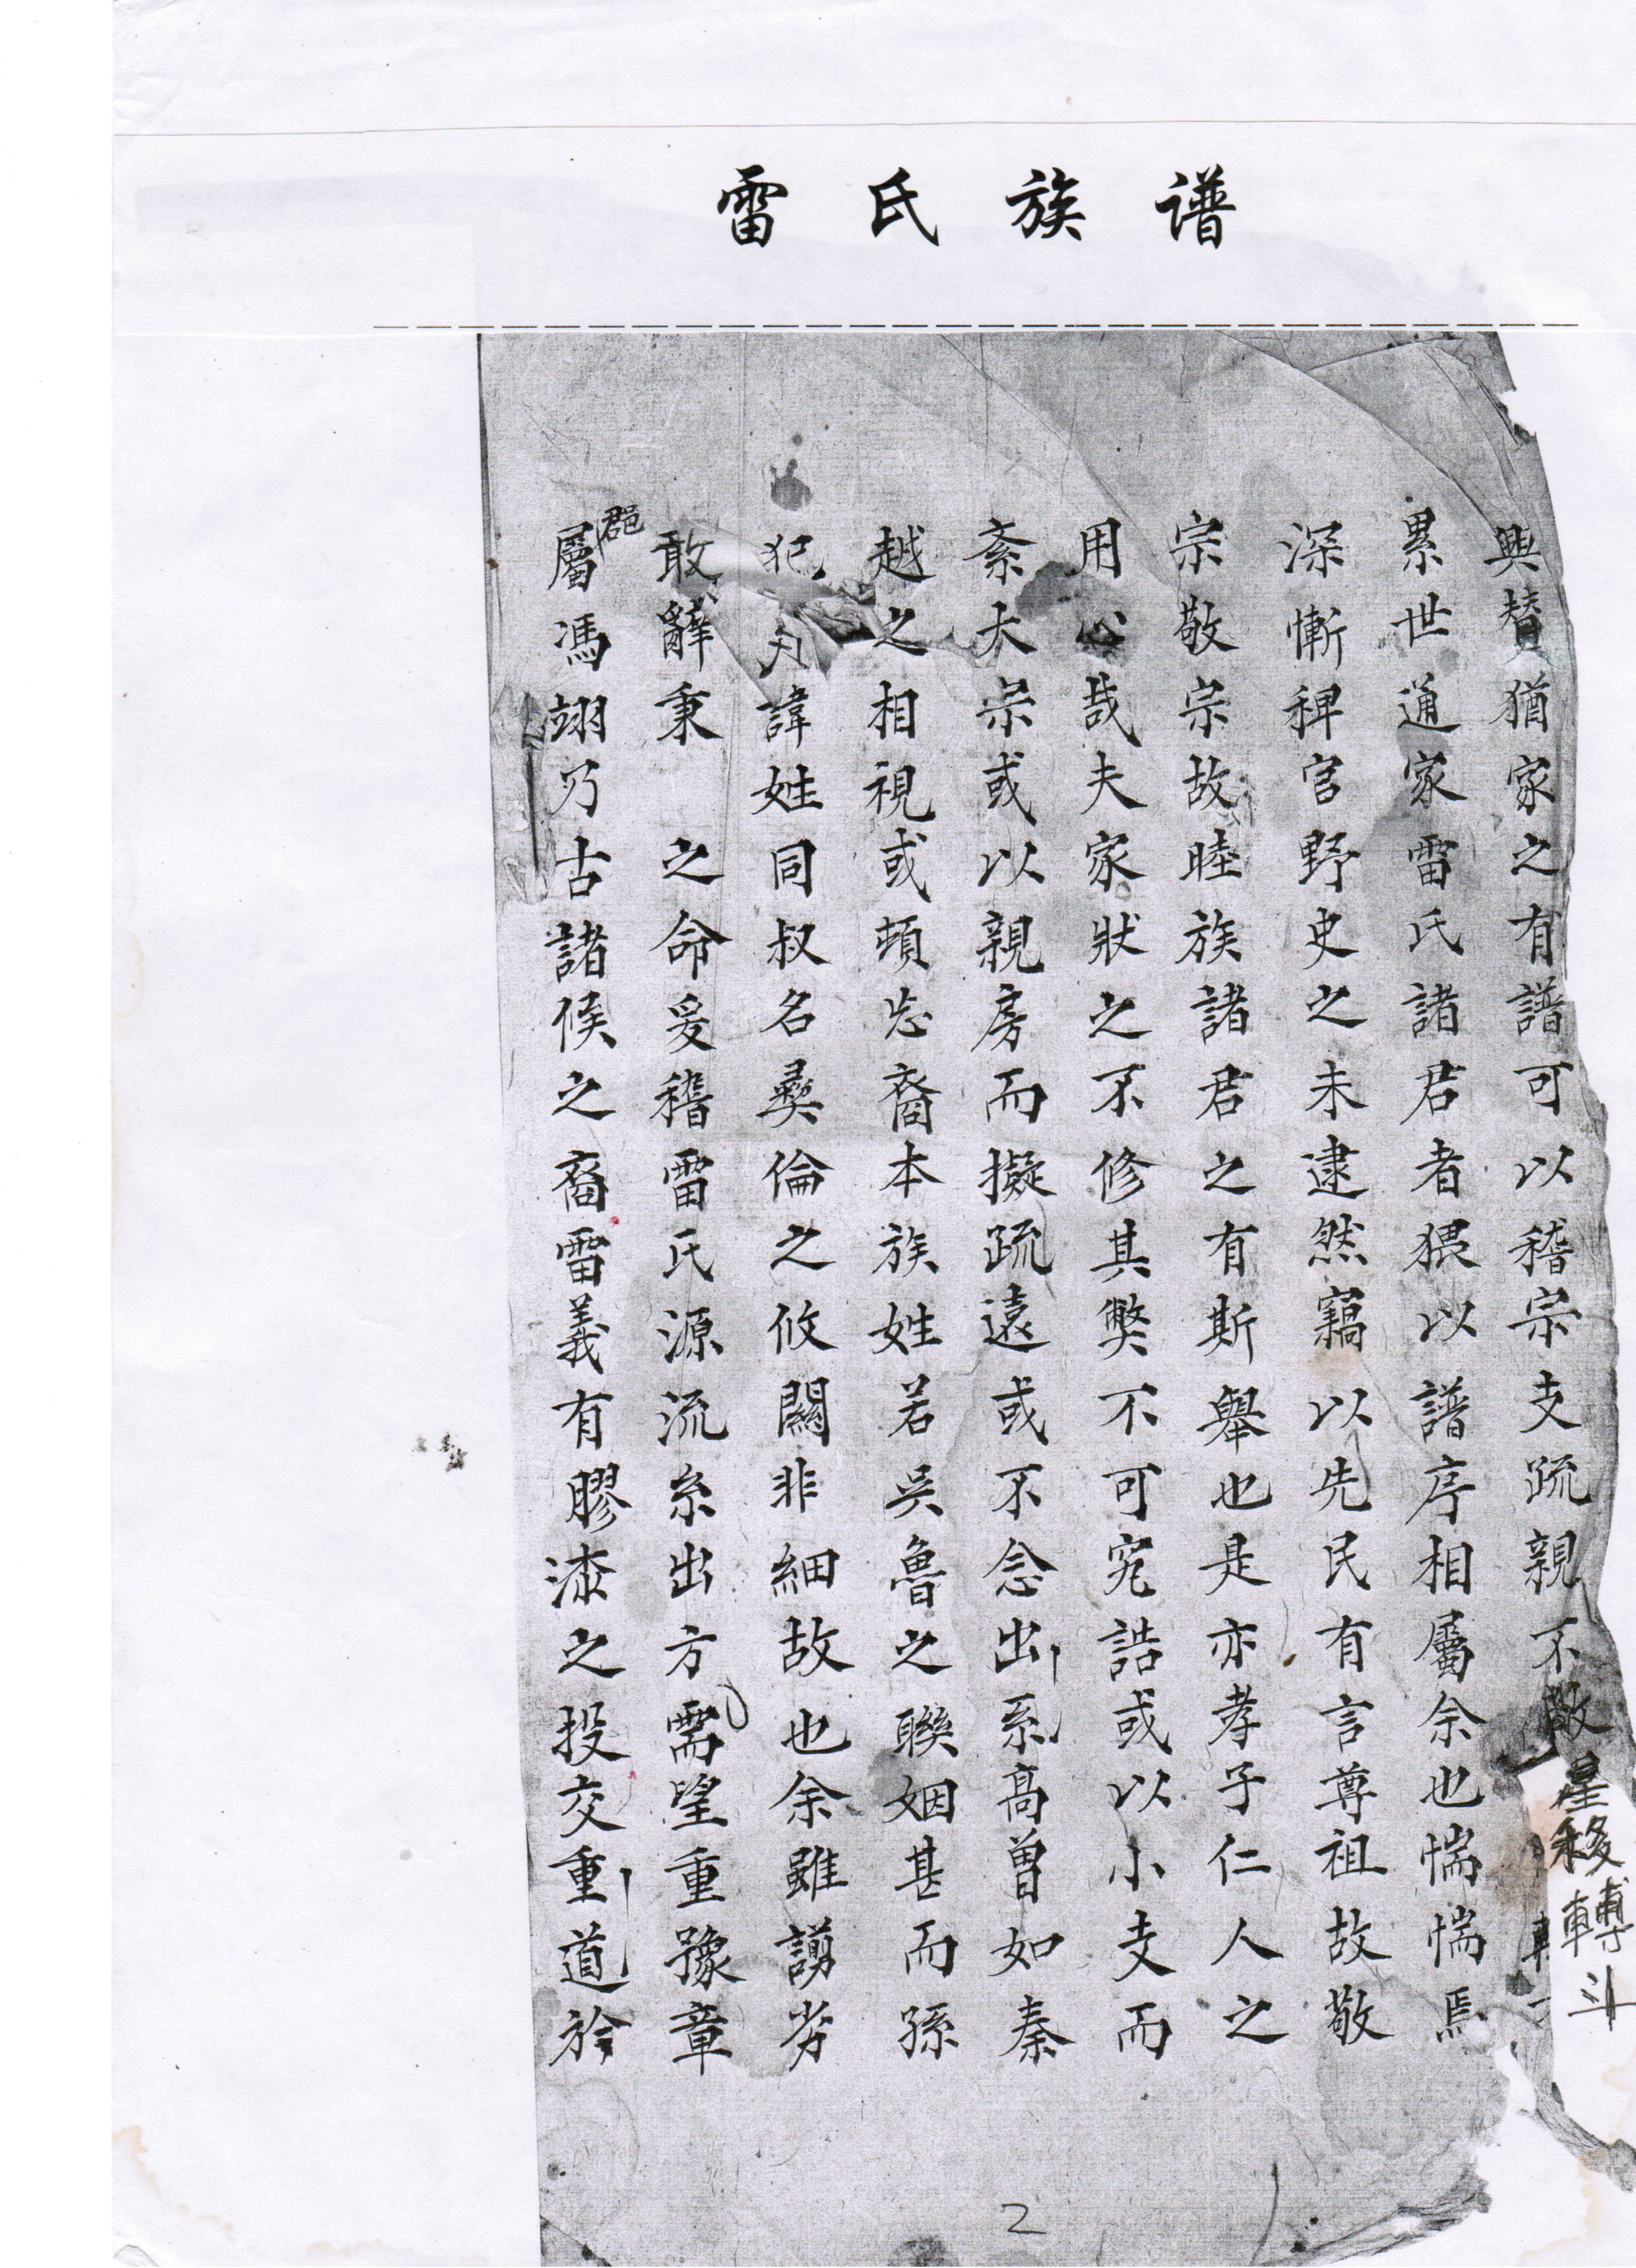 雷氏族谱
興替猶家之有譜可以稽宗支疏親不敢星移轉斗
累世通家雷氏諸君者猥以譜序相屬余也惴惴焉
深慚稗官野史之未逮然竊以先民有言尊祖故敬
宗敬宗故睦族諸君之有斯舉也是亦孝子仁人之
用心哉夫家狀之不修其弊不可究誥或以小支而
紊大宗或以親房而擬疏遠或不念出系高曾如秦
越之相視或頓忘裔本族姓若吳魯之聯姻甚而孫
犯諱姓同叔名彝倫之攸關非細故也余雖謭劣
敢辭秉 之命爰稽雷氏源流系出方雷望重豫章
郡邑
屬馮翊乃古諸侯之裔雷義有膠漆之投交重道於
2